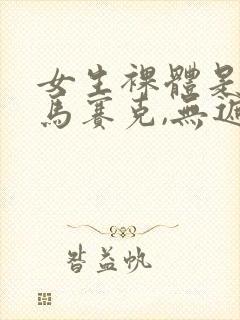 女生裸體是
馬賽克,無遮
昝益帆